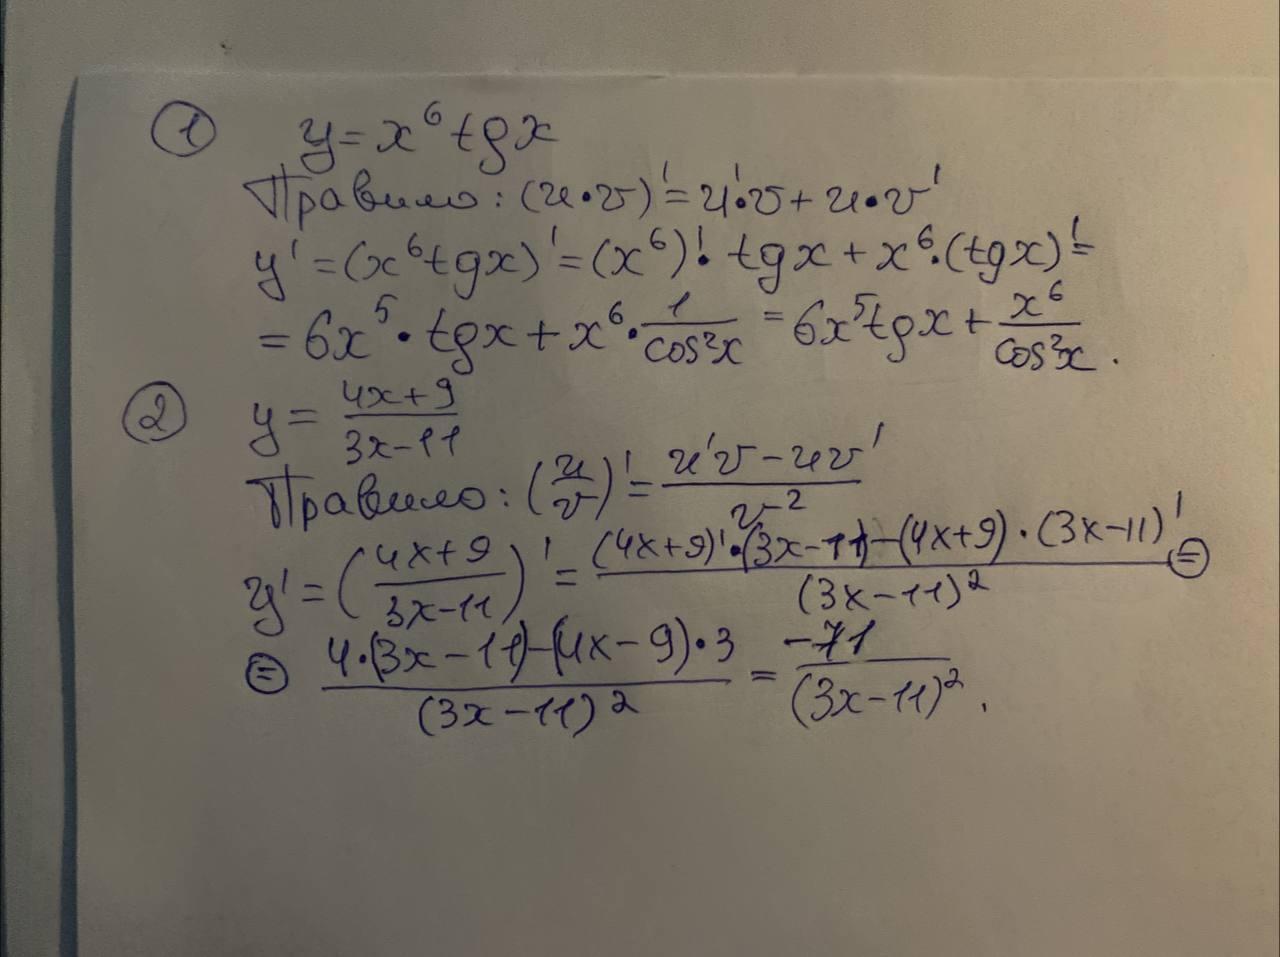 ① y = x⁶ tg x
Правило: (u·v)' = u'·v + u·v'
y' = (x⁶ tg x)' = (x⁶)'· tg x + x⁶·(tg x)' =
= 6x⁵· tg x + x⁶· 1/cos²x = 6x⁵ tg x + x⁶/cos²x .
② y = (4x+9)/(3x-11)
Правило: (u/v)' = (u'v - uv')/v²
y' = ((4x+9)/(3x-11))' = ((4x+9)'·(3x-11)-(4x+9)·(3x-11)')/(3x-11)² ⊜
⊜ (4·(3x-11)-(4x-9)·3)/(3x-11)² = -71/(3x-11)² .